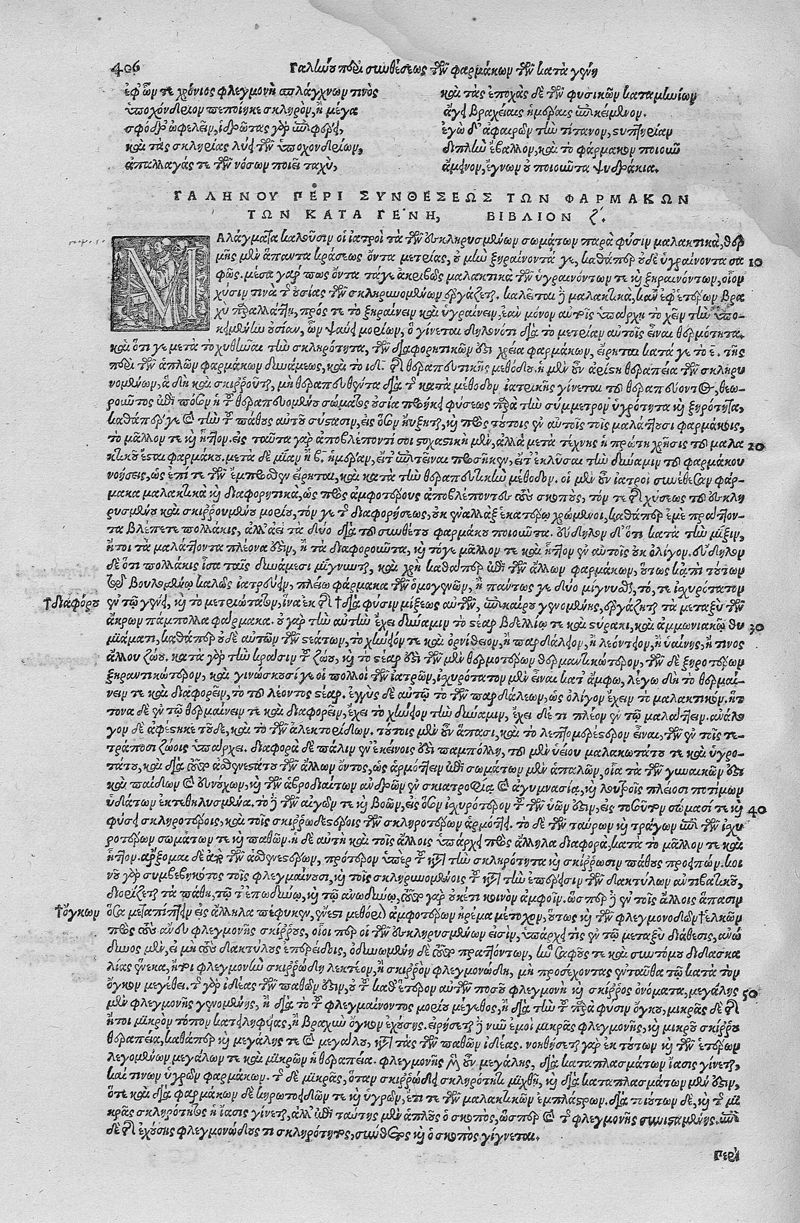 406
Γαληνοῦ περὶ συνθέσεως τῶν φαρμάκων τῶν κατὰ γένη
ἐφ' ὧν τε χρόνιος φλεγμονὴ σπλάγχνων τινὸς
ὑποχόνδριον πεποίηκε σκληρὸν, ἢ μέγα
σφόδρα ὠφελεῖν, ἱδρῶτας γὰρ ἐπιφέρει,
καὶ τὰς σκληρίας λύει τῶν ὑποχονδρίων,
ἀπαλλαγάς τε τῶν νόσων ποιεῖ ταχὺ,
καὶ τὰς ἐποχὰς δὲ τῶν φυσικῶν καταμηνίων
ἄγει βραχείαις ἡμέραις ἐπικείμενον.
ἐγὼ δ' ἀφαιρῶν τὴν τίτανον, στυπτηρίαν
διπλῆν ἔβαλλον, καὶ τὸ φάρμακον ποιοῦν
ἄμεινον, ἔγνων ὃ ποιοῦντα ψυδράκια.
ΓΑΛΗΝΟΥ ΠΕΡΙ ΣΥΝΘΕΣΕΩΣ ΤΩΝ ΦΑΡΜΑΚΩΝ
ΤΩΝ ΚΑΤΑ ΓΕΝΗ, ΒΙΒΛΙΟΝ ζ.
ΜΑΛΑΓΜΑΤΑ καλοῦσιν οἱ ἰατροὶ τὰ τῶν ἐσκληρυσμένων σωμάτων παρὰ φύσιν μαλακτικὰ, θερ
μῆς μὲν ἅπαντα κράσεως ὄντα μετρίας, οὐ μὴν ξηραίνοντά γε, καθάπερ οὐδὲ ὑγραίνοντα σα 10
φῶς. μέσα γάρ πως ὄντα τά γε ἀκριβῶς μαλακτικὰ τῶν ὑγραινόντων τε καὶ ξηραινόντων, οἷον
χύσιν τινὰ τῆς οὐσίας τῶν σκληρυνομένων ἐργάζεται. καλεῖται δὲ μαλακτικὰ, κἂν ἐφ' ἕτερον βρα
χὺ παραλλάττῃ, πρός τε τὸ ξηραίνειν καὶ ὑγραίνειν, ἐὰν μόνον αὐτοῖς ὑπάρχῃ τὸ χεῖν τὴν ὑπο-
κειμένην οὐσίαν, ὧν ψαύει μορίων, ὃ γίνεται δηλονότι διὰ τὸ μετρίαν αὐτοῖς εἶναι θερμότητα.
καὶ ὅτι γε μετὰ τὸ χυθῆναι τὴν σκληρότητα, τῶν διαφορητικῶν ἐστι χρεία φαρμάκων, εἴρηται κατά γε τὸ ε. τῆς
περὶ τῶν ἁπλῶν φαρμάκων δυνάμεως, καὶ τὸ ιδ. τῆς θεραπευτικῆς μεθόδου. ἡ μὲν οὖν ἀρίστη θεραπεία τῶν σκληρυ
νομένων, ἃ δὴ καὶ σκιρροῦται, μὴ θεραπευθέντα διὰ τοῦ κατὰ μέθοδον ἰατρικῆς γίνεται τοῦ θεραπεύοντος, θεω-
ροῦντος ἐπὶ πόσον ἡ τοῦ θεραπευομένου σώματος οὐσία προήχθη φύσεως παρὰ τὴν σύμμετρον ὑγρότητα καὶ ξηρότητα,
καθάπερ γε καὶ τὴν τοῦ πάθους αὐτοῦ σύστασιν, εἰς ὅσον ηὔξηται, καὶ πῶς τούτοις ἐν αὐτοῖς τοῖς μαλάττουσι φαρμάκοις,
τὸ μᾶλλόν τε καὶ ἧττον. εἰς ταῦτα γὰρ ἀποβλέποντί σοι στοχαστικὴ μὲν, ἀλλὰ μετὰ τέχνης ἡ πρώτη χρῆσις τοῦ μαλα 20
κτικοῦ ἔσται φαρμάκου. μετὰ δὲ μίαν ἢ β. ἡμέραν, εἴτ' ἐπιτεῖναι προσήκεν, εἴτ' ἐκλῦσαι τὴν δύναμιν τοῦ φαρμάκου
νοήσεις, ὡς ἐπί τε τῶν ἔμπροσθεν εἴρηται, καὶ κατὰ τὴν θεραπευτικὴν μέθοδον. οἱ μὲν οὖν ἰατροὶ συνέθεσαν φάρ-
μακα μαλακτικὰ καὶ διαφορητικὰ, ὡς πρὸς ἀμφοτέρους ἀποβλέποντα τοὺς σκοποὺς, τόν τε τῆς χύσεως τοῦ ἐσκλη
ρυσμένου καὶ σκιρρουμένου μορίου, τόν γε τῆς διαφορήσεως, οὐκ ἐναλλὰξ ἑκατέρῳ χρώμενοι, καθάπερ ἐμὲ πράττον-
τα βλέπετε πολλάκις, ἀλλ' ἀεὶ τὰ δύο διὰ τοῦ συνθέτου φαρμάκου ποιοῦντα. εὔδηλον δ' ὅτι κατὰ τὴν μίξιν,
ἤτοι τὰ μαλάττοντα πλέονα ἐστιν, ἢ τὰ διαφοροῦντα, καὶ τό γε μᾶλλόν τε καὶ ἧττον ἐν αὐτοῖς οὐκ ὀλίγον. εὔδηλον
δὲ ὅτι πολλάκις ἴσα ταῖς δυνάμεσι μίγνυται, καὶ χρὴ καθάπερ ἐπὶ τῶν ἄλλων φαρμάκων, οὕτως κἀπὶ τούτων
βουλομένῳ καλῶς ἰατρεύειν, πλείω φάρμακα τῶν ὁμογενῶν, ἢ πάντως γε δύο μιγνυθῇ, τό, τε ἰσχυρότατον
†διαφόρου ἐν τῷ γένει, καὶ τὸ μετριώτατον, ἵνα ἐκ τῆς †διαφύσιν μίξεως αὐτῶν, ἐπικαίρως γενομένης, ἐργάζηται τὰ μεταξὺ τῶν
ἄκρων πάμπολλα φάρμακα. οὐ γὰρ τὴν αὐτὴν ἔχει δύναμιν τὸ στέαρ βδελλίῳ τε καὶ στύρακι, καὶ ἀμμωνιακῷ θυ 30
μιάματι, καθάπερ οὐδὲ αὐτῶν τῶν στεάτων, τὸ χήνειόν τε καὶ ὀρνίθειον, ἢ παρδάλειον, ἢ λεόντειον, ἢ ὑαίνης, ἤ τινος
ἄλλου ζώου. κατὰ γὰρ τὴν κρᾶσιν τοῦ ζώου, καὶ τὸ στέαρ ἐστὶ τῶν μὲν θερμοτέρων θερμαντικώτερον, τῶν δὲ ξηροτέρων
ξηραντικώτερον, καὶ γινώσκουσί γε οἱ πολλοὶ τῶν ἰατρῶν, ἰσχυρότατον μὲν εἶναι κατ' ἄμφω, λέγω δὴ τὸ θερμαί-
νειν τε καὶ διαφορεῖν, τὸ τοῦ λέοντος στέαρ. ἐγγὺς δὲ αὐτῷ τὸ τῶν παρδάλεων, ὡς ὀλίγον ἔχειν τὸ μαλακτικόν. ἧτ
τονα δὲ ἐν τῷ θερμαίνειν τε καὶ διαφορεῖν, ἔχει τὸ χήνειον τὴν δύναμιν, ἔχει δέ τι πλέον ἐν τῷ μαλάττειν. ἀνάλο
γον δὲ ἀφέστηκε τοῦδε, καὶ τὸ τῶν ἀλεκτορίδων. τούτοις μὲν οὖν ἅπασι, καὶ τὸ λεπτομερέστερον εἶναι, τῶν ἐν τοῖς τε-
τράποσι ζώοις ὑπάρχει. διαφορὰ δὲ πάλιν ἐν ἐκείνοις ἐστὶ παμπόλλη, τοῦ μὲν ὑείου μαλακωτάτου τε καὶ ὑγρο-
τάτου, καὶ διὰ τοῦτο ἀσθενεστάτου τῶν ἄλλων ὄντος, ὡς ἁρμόττειν ἐπὶ σωμάτων μὲν ἁπαλῶν, οἷα τὰ γυναικῶν ἐστι
καὶ παιδίων καὶ εὐνούχων, καὶ τῶν ἁβροδιαίτων ἀνδρῶν ἐν σκιατροφίᾳ καὶ ἀγυμνασίᾳ, καὶ λουτροῖς πλείοσι ποτίμων
ὑδάτων ἐκτεθηλυσμένα. τὸ δὲ τῶν αἰγῶν τε καὶ βοῶν, εἰς ὅσον ἰσχυρότερον τοῦ τῶν ὑῶν ἐστιν, εἰς τοσοῦτον σώμασί τε καὶ 40
φύσει σκληροτέροις, καὶ τοῖς σκιρρωδεστέροις τῶν σκληροτέρων ἁρμόττει. τὸ δὲ τῶν ταύρων καὶ τράγων ἐπὶ τῶν ἰσχυ
ροτέρων σωμάτων τε καὶ παθῶν. ἡ δὲ αὐτὴ καὶ τοῖς ἄλλοις ὑπάρχει πρὸς ἄλληλα διαφορὰ, κατὰ τὸ μᾶλλόν τε καὶ
ἧττον. ἄρξομαι δὲ ἀπὸ τῶν ἀσθενεστέρων, πρότερον ὑπὲρ τοῦ κατὰ τὴν σκληρότητα καὶ σκίρρωσιν πάθους προειπών. κοι
νοῦ γὰρ συμβεβηκότος τοῖς φλεγμαίνουσι, καὶ τοῖς σκληρυνομένοις τοῦ κατὰ τὴν ἐπέρεισιν τῶν δακτύλων ἀντιβατικοῦ,
διορίζεται τὰ πάθη, τῷ τε ἐπωδύνῳ, καὶ τῷ ἀνωδύνῳ, τοῦτο γὰρ οὐκέτι κοινὸν ἀμφοῖν. ὥσπερ δὲ ἐν τοῖς ἄλλοις ἅπασιν
†ὄγκων ὅσα μεταπίπτειν εἰς ἄλληλα πέφυκεν, ἔνεστι μεθόριον ἀμφοτέρων ἠρέμα μετέχον, οὕτως καὶ τῶν φλεγμονωδῶν †ἑλκῶν
πρὸς τοὺς ἄνευ φλεγμονῆς σκίρρους, οἷοί περ οἱ τῶν ἐσκληρυσμένων εἰσὶν, ὑπάρχει τις ἐν τῷ μεταξὺ διάθεσις, ἀνώ
δυνος μὲν, εἰ μὴ τοὺς δακτύλους ἐπερείδοις, ὀδυνωμένη δὲ τοῦτο πραττόντων, ἣν σαφοῦς τε καὶ συντόμου διδασκα
λίας ἕνεκα, ἤτοι φλεγμονὴν σκιρρώδη λεκτέον, ἢ σκίρρον φλεγμονώδη, μὴ προσέχοντας ἐνταῦθα τῷ κατὰ τὸν
ὄγκον μεγέθει. τοῦ γὰρ ἰδέας τῶν παθῶν ἐστιν, οὐ τοῦ καθ' ἕτερον αὐτῶν ποσοῦ φλεγμονὴ καὶ σκίρρος ὀνόματα, μεγάλης 50
μὲν φλεγμονῆς γενομένης, ἢ διὰ τὸ τοῦ φλεγμαίνοντος μορίου μέγεθος, ἢ διὰ τὴν τοῦ παρὰ φύσιν ὄγκου, μικρᾶς δὲ τῆς
ἤτοι μικρὸν τόπον κατειληφυίας, ἢ βραχὺν ὄγκον ἐχούσης. εἰρήσεται δὲ νῦν ἐμοὶ μικρᾶς φλεγμονῆς, καὶ μικροῦ σκίρρου
θεραπεία, καθάπερ καὶ μεγάλης τε καὶ μεγάλου, κατὰ τὰς τῶν παθῶν ἰδέας. νοηθήσεται γὰρ ἐκ τούτων καὶ τῶν ἑτέρων
λεγομένων μεγάλων τε καὶ μικρῶν ἡ θεραπεία. φλεγμονῆς μὲν οὖν μεγάλης, διὰ καταπλασμάτων ἴασις γίνεται,
καί τινων ὑγρῶν φαρμάκων. τῆς δὲ μικρᾶς, ὅταν σκιρρώδει σκληρότητι μιχθῇ, καὶ διὰ καταπλασμάτων μὲν ἐστιν,
ὅτε καὶ διὰ φαρμάκων δὲ κηρωτοειδῶν τε καὶ ὑγρῶν, ἔτι τε τῶν μαλακτικῶν ἐμπλάστρων. διὰ τούτων δὲ, καὶ τῆς μι
κρᾶς σκληρότητος ἡ ἴασις γίνεται, ἀλλ' ἐπὶ ταύτης μὲν ἁπλοῦς ὁ σκοπὸς, ὥσπερ καὶ τῆς φλεγμονῆς συνισταμένης. ἐπὶ
δὲ τῆς ἐχούσης φλεγμονώδους τι σκληρότητος, σύνθετος καὶ ὁ σκοπὸς γίγνεται.
Περὶ